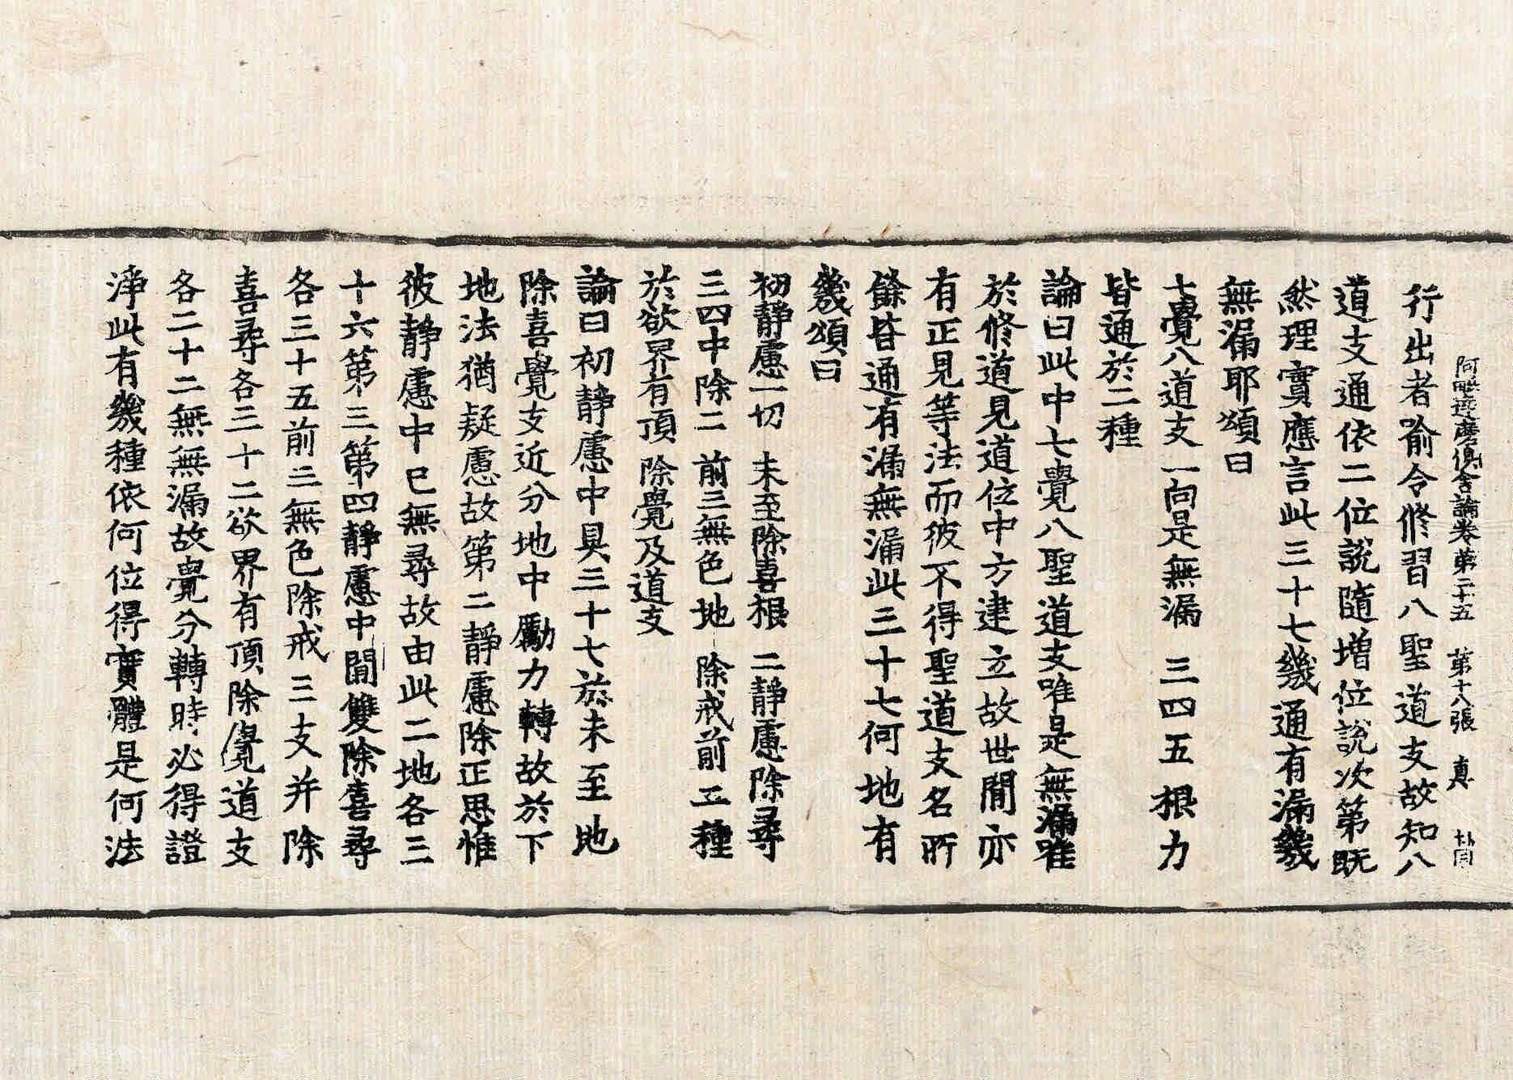 阿毗達磨俱舍論卷第二十五　第十八張　真
行出者喻令修習八聖道支故知八
道支通依二位說隨增位說次第既
然理實應言此三十七幾通有漏幾
無漏耶頌曰
七覺八道支　一向是無漏　三四五根力
皆通於二種
論曰此中七覺八聖道支唯是無漏唯
於修道見道位中方建立故世閒亦
有正見等法而彼不得聖道支名所
餘皆通有漏無漏此三十七何地有
幾頌曰
初靜慮一切　未至除喜根　二靜慮除尋
三四中除二　前三無色地　除戒前二種
於欲界有頂　除覺及道支
論曰初靜慮中具三十七於未至地
除喜覺支近分地中勵力轉故於下
地法猶疑慮故第二靜慮除正思惟
彼靜慮中已無尋故由此二地各三
十六第三第四靜慮中閒雙除喜尋
各三十五前三無色除戒三支并除
喜尋各三十二欲界有頂除覺道支
各二十二無無漏故覺分轉時必得證
淨此有幾種依何位得實體是何法